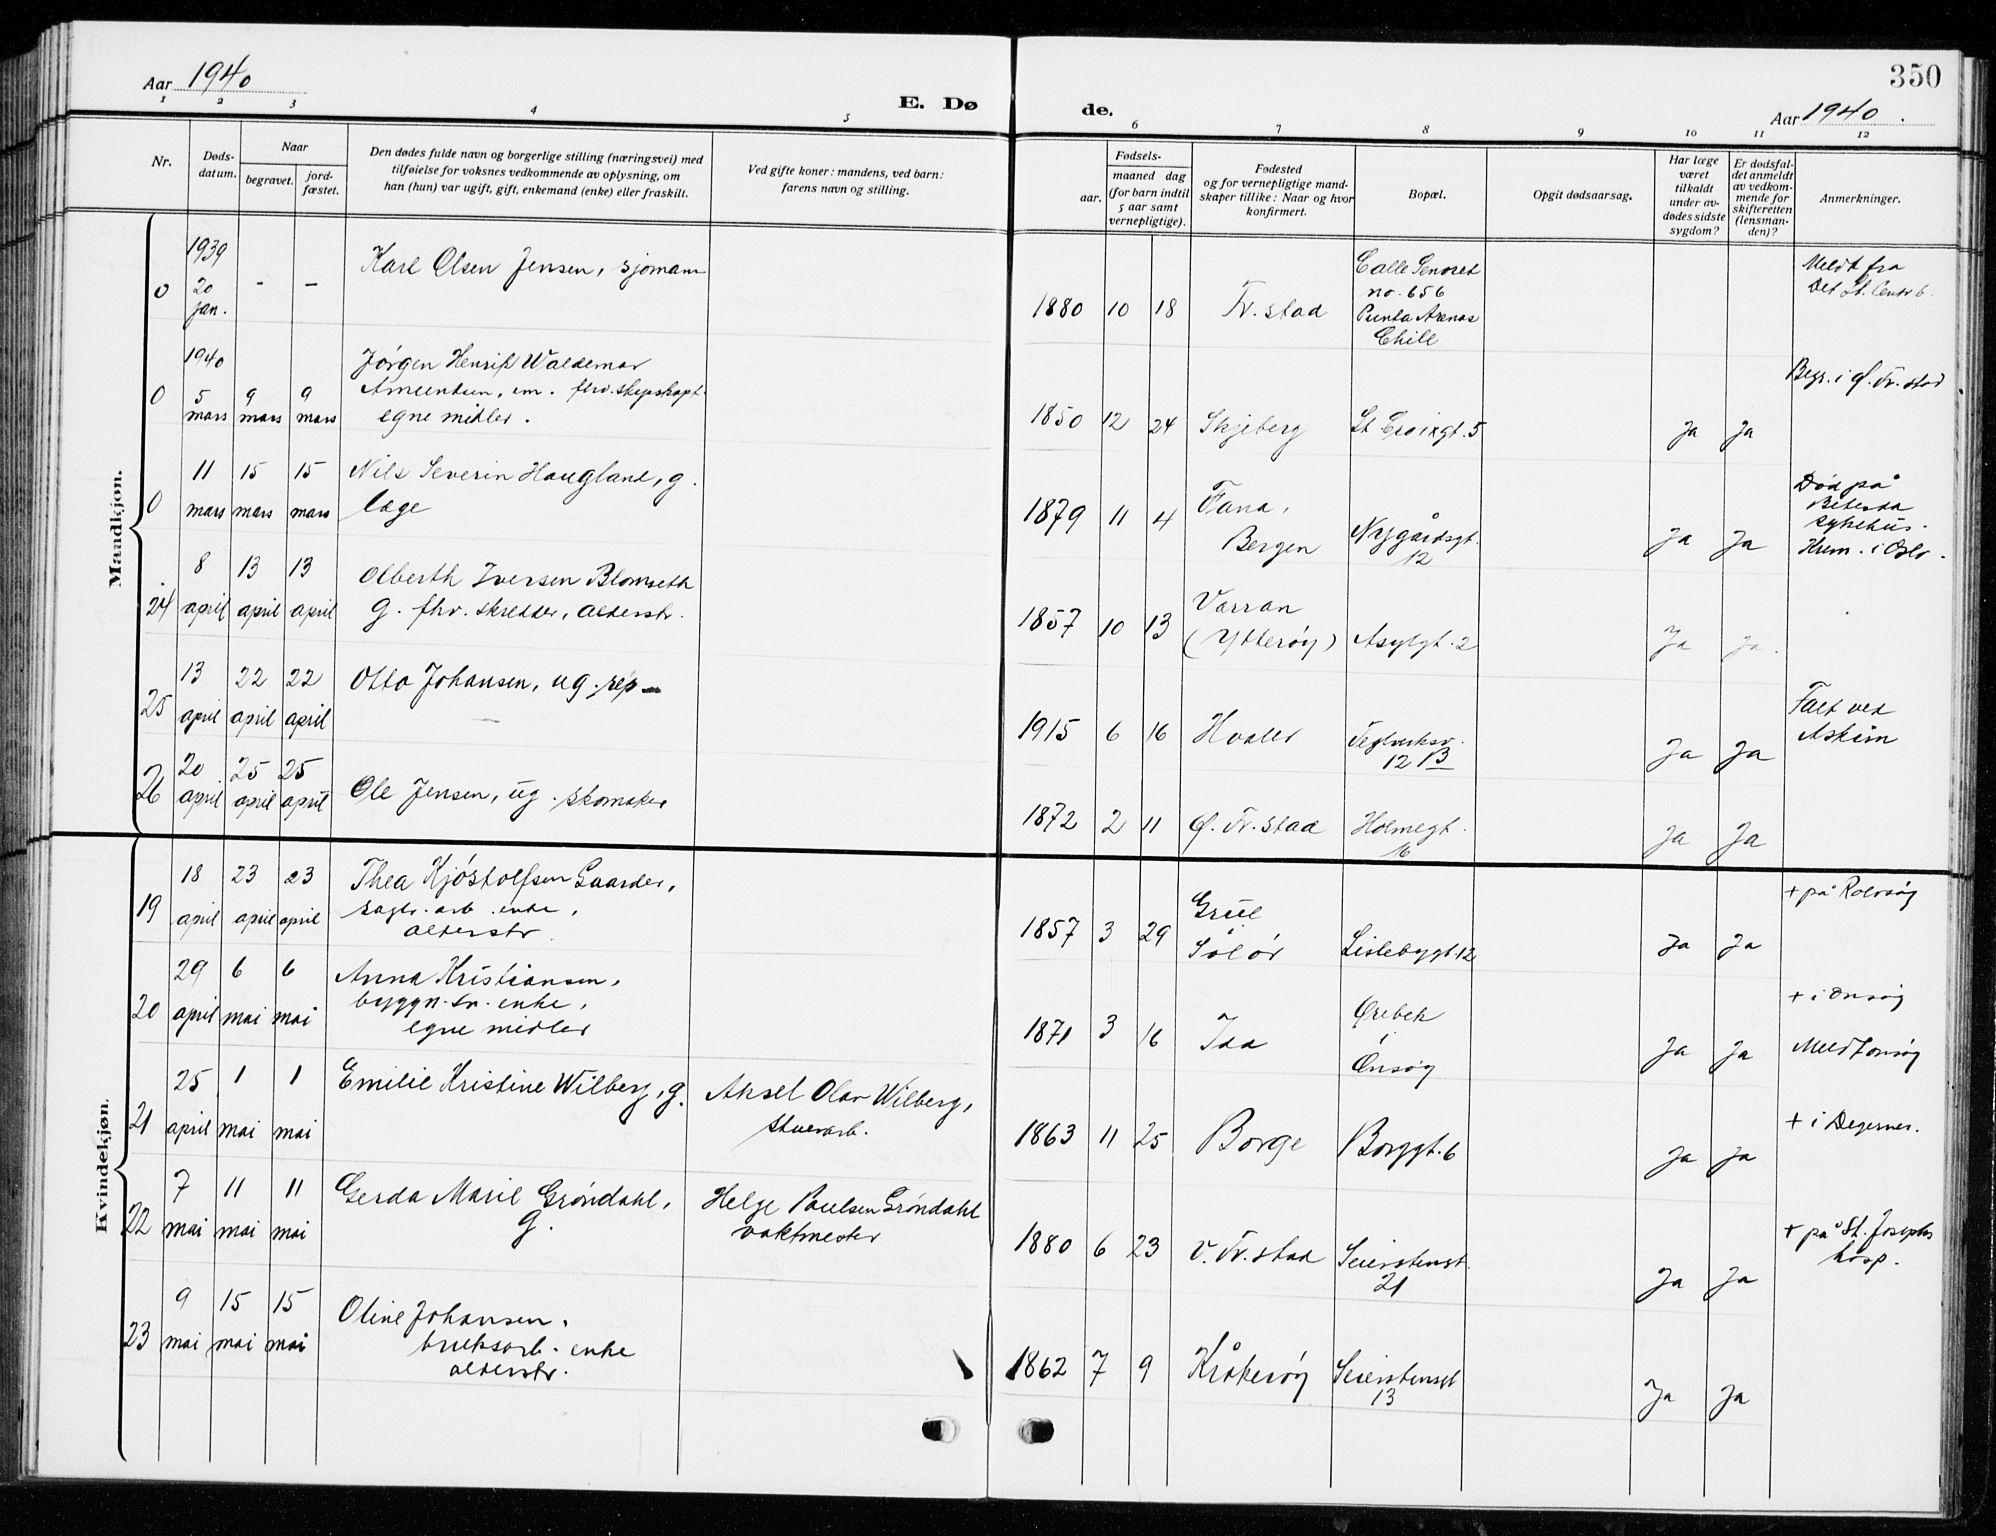 Aar 1940
E. Dø
de.
350
Aar 1940.
1 2 3 4 5 6 7 8 9 10 11 12
Nr.
Døds-
datum.
Naar
begravet.
jord-
fæstet.
Den dødes fulde navn og borgerlige stilling (næringsvei) med
tilføielse for voksnes vedkommende av oplysning, om
han (hun) var ugift, gift, enkemand (enke) eller fraskilt.
Ved gifte koner: mandens, ved barn:
farens navn og stilling.
Fødsels-
aar.
maaned dag
(for barn indtil
5 aar samt
vernepligtige).
Fødested
og for vernepligtige mand-
skaper tillike: Naar og hvor
konfirmert.
Bopæl.
Opgit dødsaarsag.
Har læge
været
tilkaldt
under av-
dødes sidste
sygdom?
Er dødsfal-
det anmeldt
av vedkom-
mende for
skifteretten
(lensman-
den)?
Anmerkninger.
Mandkjøn.
0
1939
20
jan.
- -
Karl Olsen Jensen, sjömann
1880 10 18
Fr.stad
Calle Senoret
no. 656
Punta Arenas
Chile
Meldt fra
Det st. Centrb.
0
1940
5 mars
9 mars
9 mars
Jörgen Henrik Waldemar
em. fhv. skipskapt.
egne midler.
1850 12 24
Skjeberg
St. Croixgt. 5
Ja Ja
Begr. i Ø. Fr.stad
0
11 mars
15 mars
15 mars
Nils Severin Haugland, g.
læge
1879 11 4
Fana,
Bergen
Nygårdsgt.
12
Ja Ja
Död på
Betesda
sykehus.
Krem. i Oslo.
24
8 april
13 april
13 april
Olberth Iversen Blomseth
g. fhv. skredder, alderstr.
1857 10 13
Varran
(Ytteröy)
Asylgt. 2
Ja Ja.
25
13 april
22 april
22 april
Otto Johansen, ug. rep
1915 6 16
Hvaler
Teglverksv.
12 B
Ja Ja
Falt ved
Askim
26
20 april
25 april
25 april
Ole Jensen, ug. skomaker
1872 2 11
Ø. Fr.stad
Holmegt.
16
Ja Ja
Kvindekjøn.
19
18 april
23 april
23 april
Thea Kjöstolfsen Gaarder,
sagbr. arb. enke,
alderstr.
1857 3 29
Grue
Solör
Lislebygt 12
Ja Ja
+ på Rolvsöy
20
29 april
6 mai
6 mai
Anna Kristiansen,
byggn. sn. enke,
egne midler
1871 3 16
Idd
Örebek
i
Önsöy
Ja Ja
+ i Onsöy
Meldt onsöy
21
25 april
1 mai
1 mai
Emilie Kristine Wilberg, g.
Aksel Olav Wilberg,
stuerarb.
1863 11 25
Borge
Borggt. 6
Ja Ja
+ i Degernes.
22
7 mai
11 mai
11 mai
Gerda Marie Gröndahl,
g.
Helge Paulsen Gröndahl
vaktmester
1880 6 23
V. Fr.stad
Seierstensgt.
21
Ja Ja
+ på St. Josephs
hosp.
23
9 mai
15 mai
15 mai
Oline Johansen,
bruksarb. enke
alderstr.
1862 7 9
Kråkeröy
Seierstensgt
13
Ja Ja